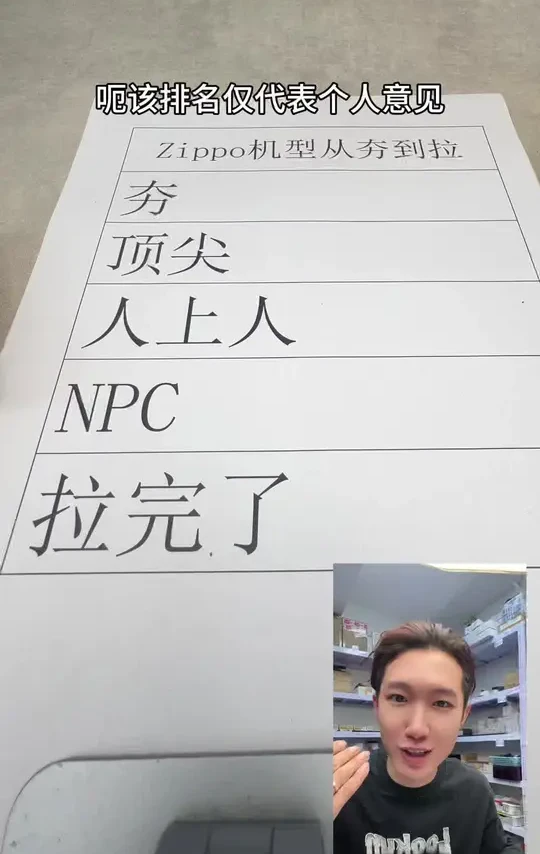 呃该排名仅代表个人意见
Zippo机型从夯到拉
夯
顶尖
人上人
NPC
拉完了